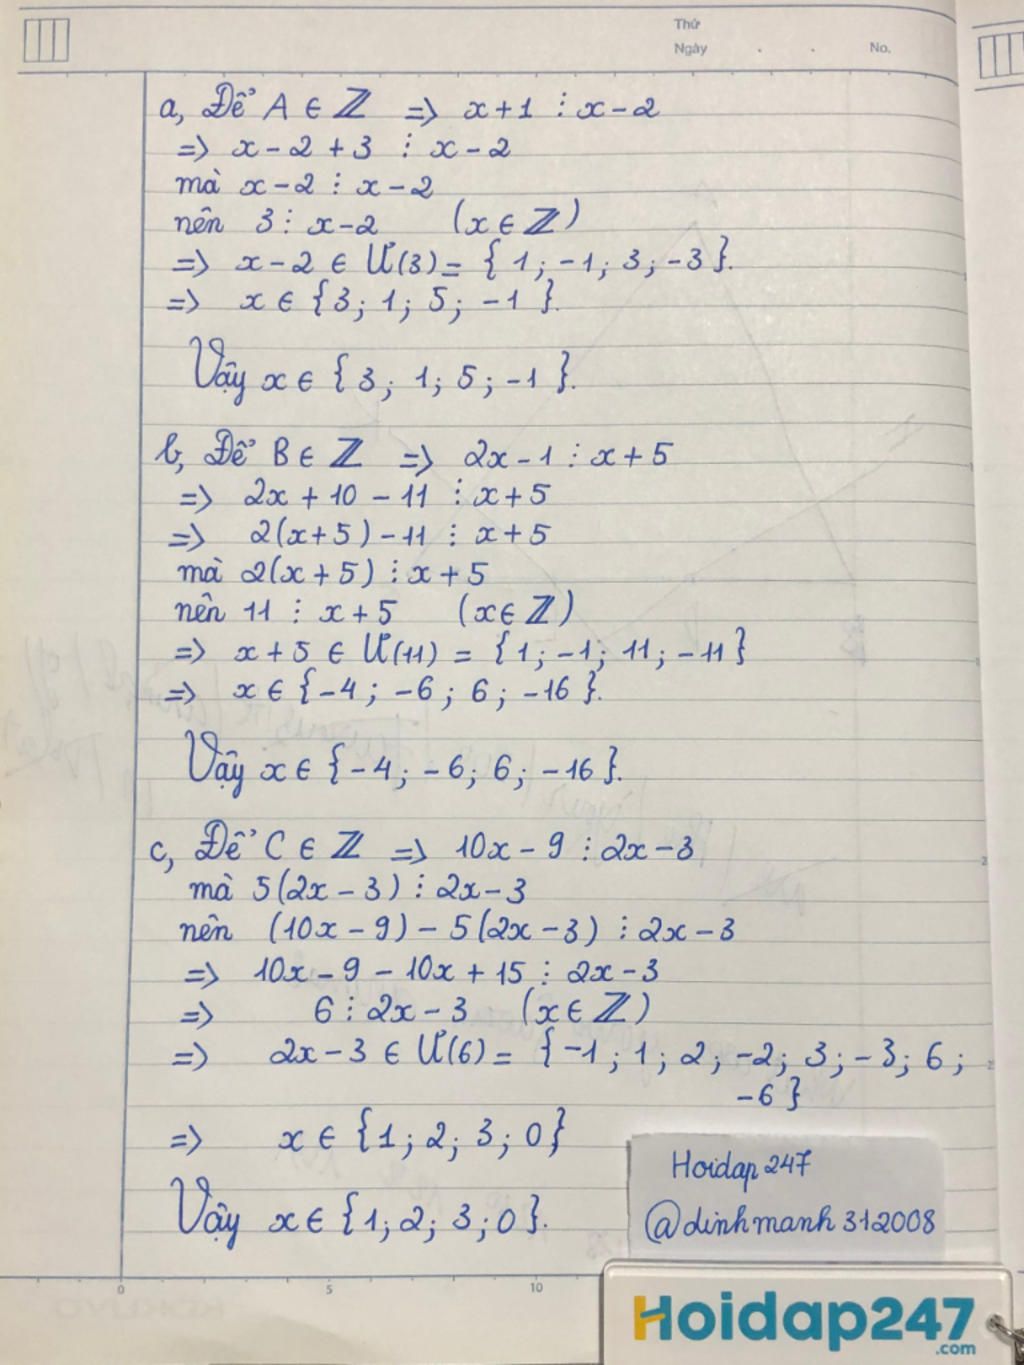 Thứ
Ngày . . No.
a, Để A ∈ ℤ => x+1 ⋮ x-2
=> x-2+3 ⋮ x-2
mà x-2 ⋮ x-2
nên 3 ⋮ x-2 (x ∈ ℤ)
=> x-2 ∈ Ư(3) = {1; -1; 3; -3}.
=> x ∈ {3; 1; 5; -1}.
Vậy x ∈ {3; 1; 5; -1}.
b, Để B ∈ ℤ => 2x-1 ⋮ x+5
=> 2x+10-11 ⋮ x+5
=> 2(x+5)-11 ⋮ x+5
mà 2(x+5) ⋮ x+5
nên 11 ⋮ x+5 (x ∈ ℤ)
=> x+5 ∈ Ư(11) = {1; -1; 11; -11}
=> x ∈ {-4; -6; 6; -16}.
Vậy x ∈ {-4; -6; 6; -16}.
c, Để C ∈ ℤ => 10x-9 ⋮ 2x-3
mà 5(2x-3) ⋮ 2x-3
nên (10x-9)-5(2x-3) ⋮ 2x-3
=> 10x-9-10x+15 ⋮ 2x-3
=> 6 ⋮ 2x-3 (x ∈ ℤ)
=> 2x-3 ∈ Ư(6) = {-1; 1; 2; -2; 3; -3; 6;
-6}
=> x ∈ {1; 2; 3; 0}
Vậy x ∈ {1; 2; 3; 0}.
Hoidap247
@dinhmanh312008
0 5 10
Hoidap247
.com